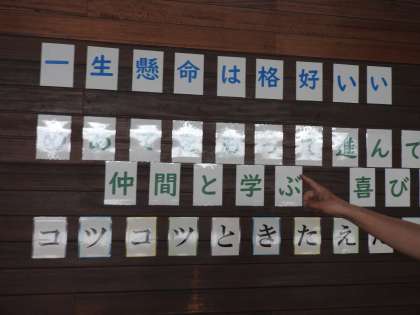 一生懸命は格好いい
めあて 進んで
仲間と学ぶ 喜び
コツコツときたえ